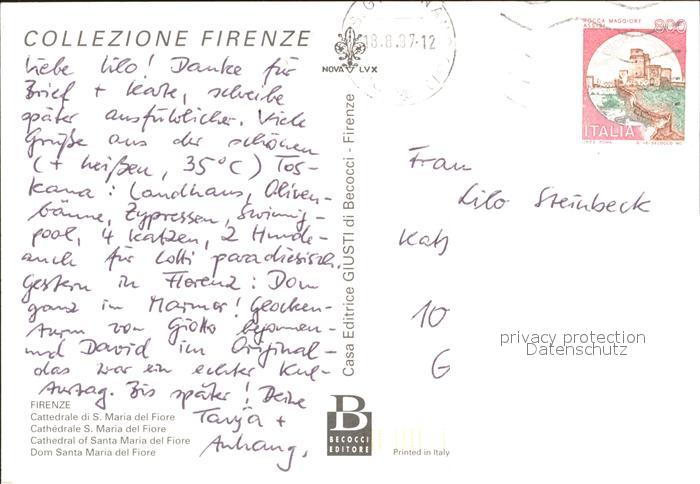 COLLEZIONE FIRENZE
Liebe Lilo! Danke für
Brief + Karte, schreibe
später ausführlicher. Viele
Grüße aus der schönen
(+ heißen, 35°C) Tos-
kana: Landhaus, Oliven-
bäume, Zypressen, Swimming-
pool, 4 Katzen, 2 Hunde-
auch für Lotti paradiesisch.
Gestern in Florenz: Dom
ganz im Marmor! Glocken-
turm von Giotto bezwungen-
und David im Original-
das war ein echter Kul-
turtag. Bis später! Deine
Tanja +
Anhang.
FIRENZE
Cattedrale di S. Maria del Fiore
Cathédrale S. Maria del Fiore
Cathedral of Santa Maria del Fiore
Dom Santa Maria del Fiore
Casa Editrice GIUSTI di Becocci - Firenze
NOVA LVX
18.8.97-12
ROCCA MAGGIORE
ASSISI
800
ITALIA
Frau
Lilo Steinbeck
Kat
10
G
privacy protection
Datenschutz
B
BECOCCI
EDITORE
Printed in Italy